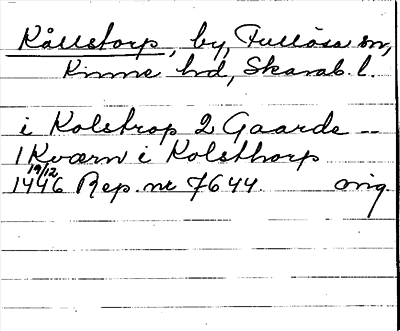 Kållstorp, by, Fullösa sn,
Kinne hd, Skarab. l.
i Kolstrop 2 Gaarde --
1 Kværn i Kolsthorp
19/12
1446 Rep. nr 7644. orig.